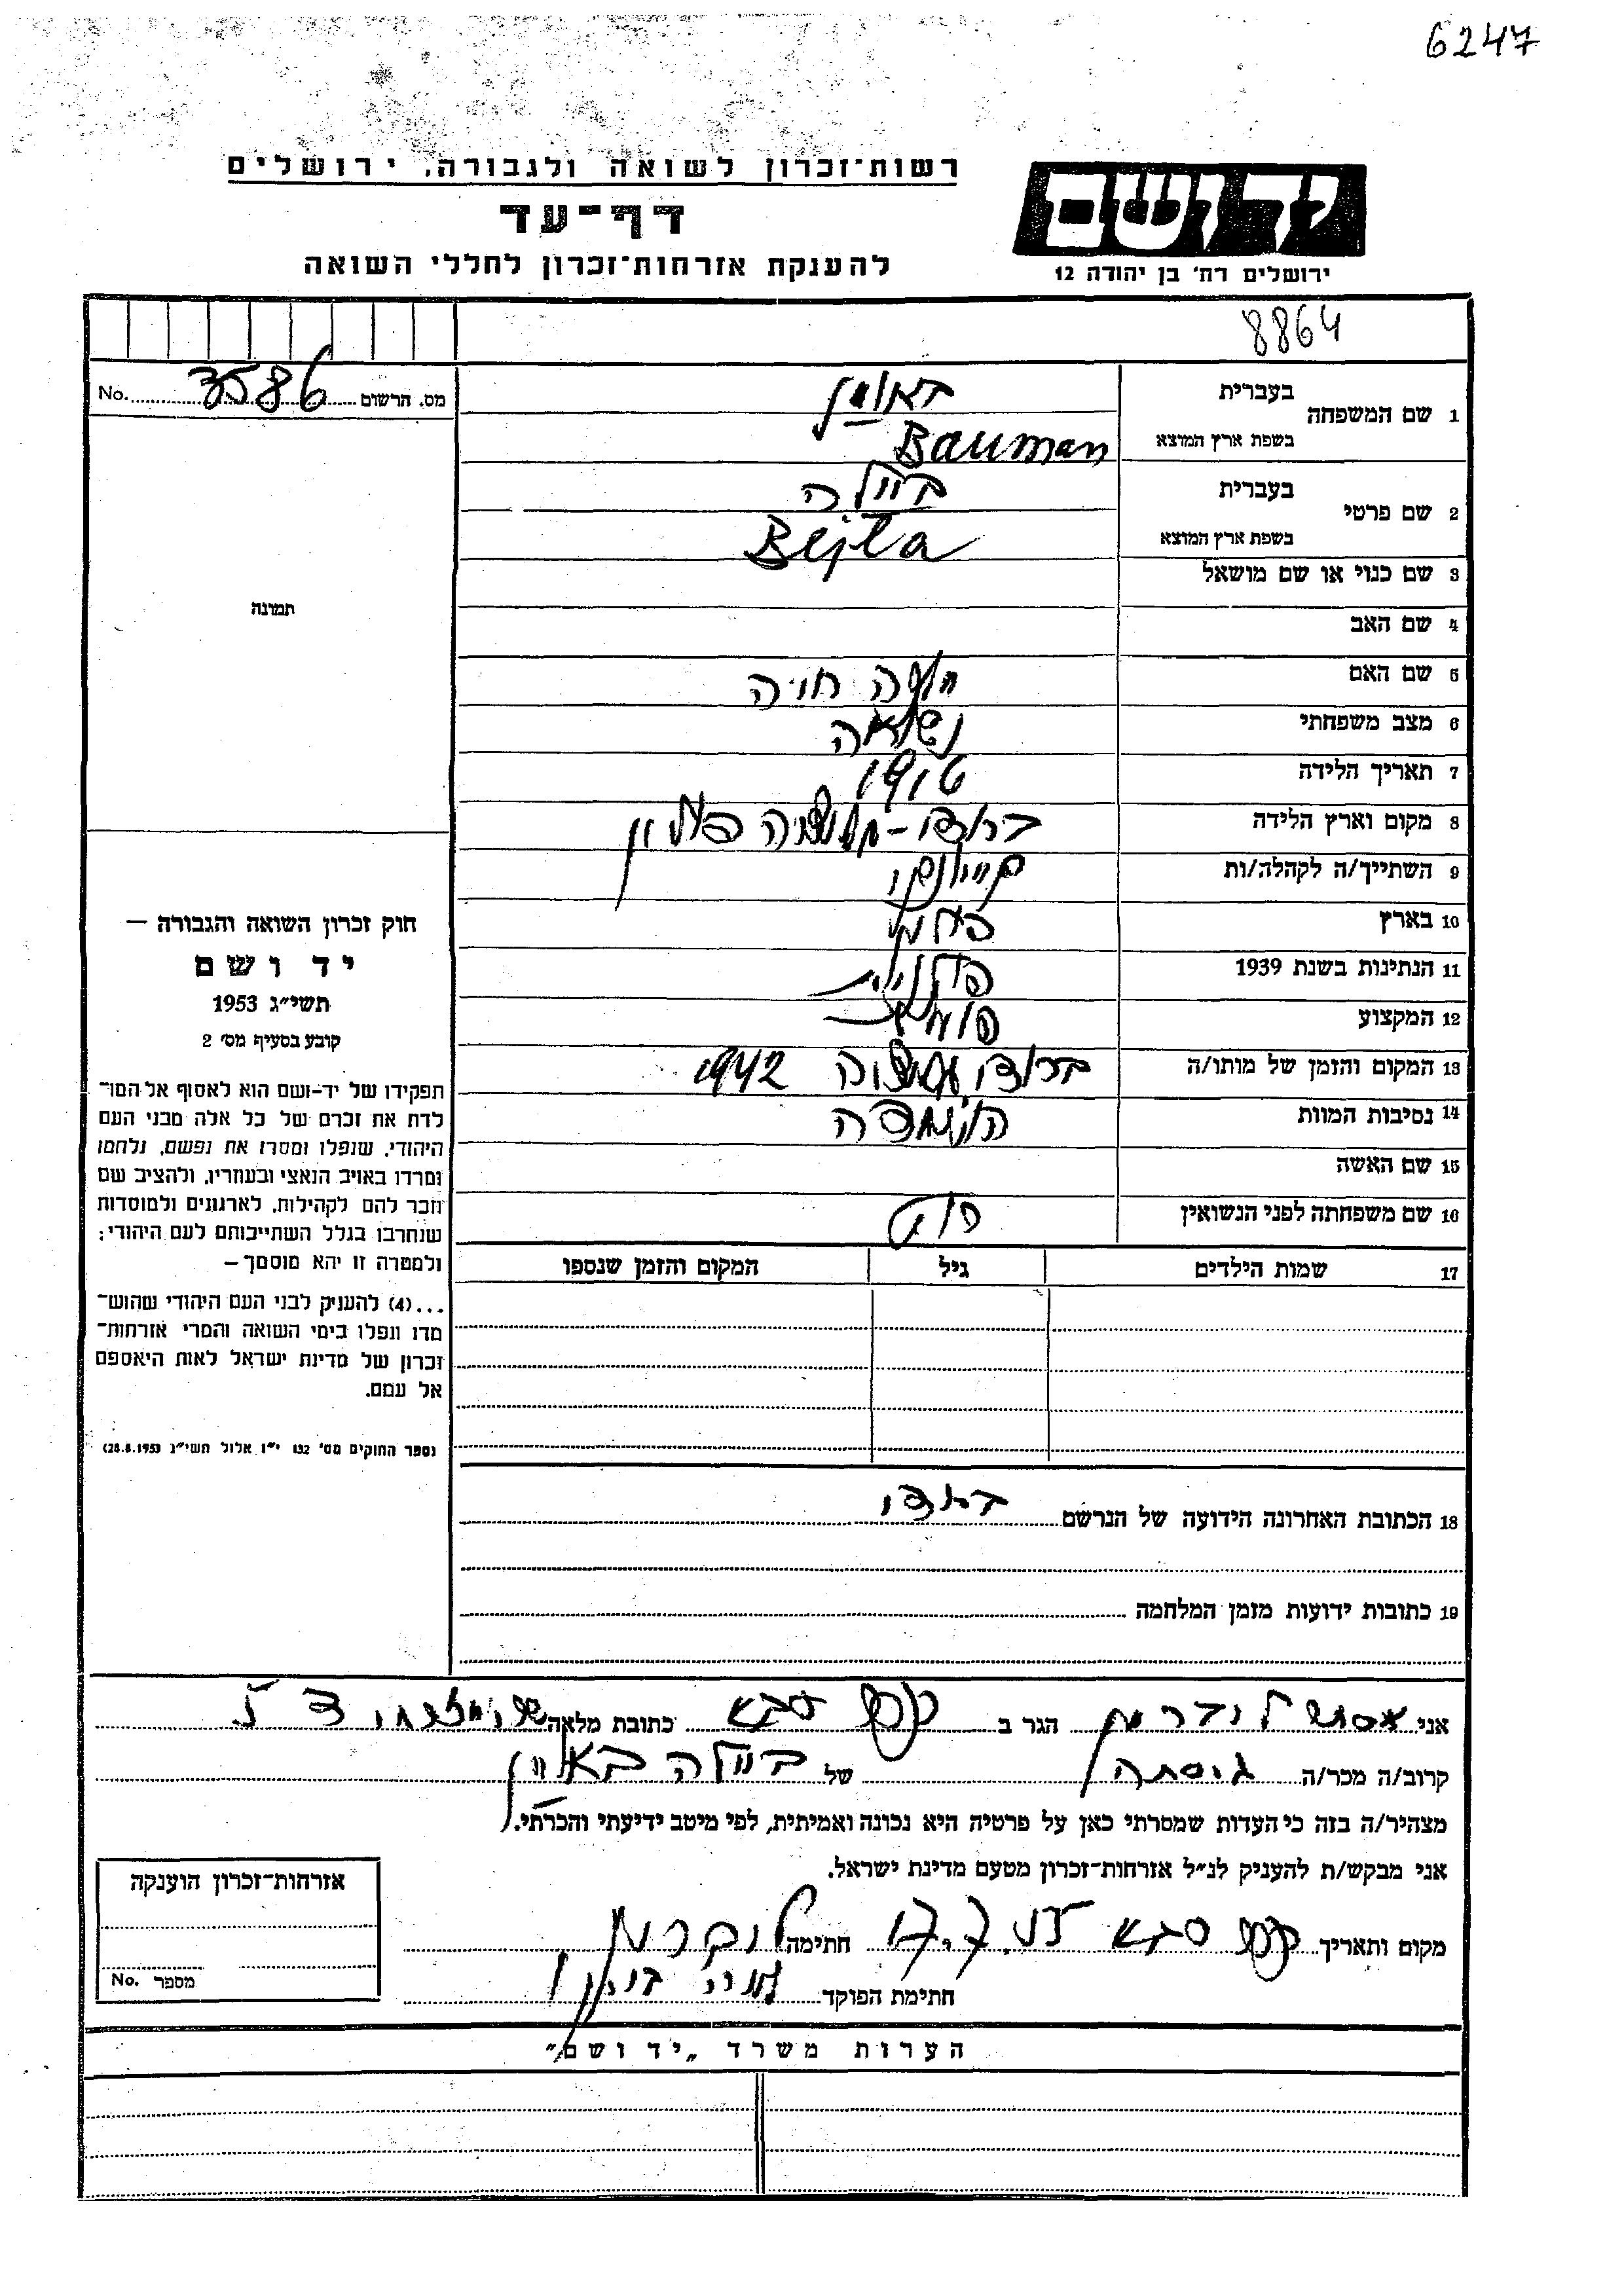 6247
יד ושם
רשות־זכרון לשואה ולגבורה, ירושלים
דף־עד
להענקת אזרחות־זכרון לחללי השואה
ירושלים רח׳ בן יהודה 12
8864
מס. הרשום 3586 No.
1 שם המשפחה
בעברית באומן
בשפת ארץ המוצא Bauman
2 שם פרטי
בעברית ביילה
בשפת ארץ המוצא Bejla
3 שם כנוי או שם מושאל
תמונה
4 שם האב
5 שם האם חיה
6 מצב משפחתי נשואה
7 תאריך הלידה 1916
8 מקום וארץ הלידה פולין
9 השתייך/ה לקהלה/ות
10 בארץ
11 הנתינות בשנת 1939 פולנית
12 המקצוע
13 המקום והזמן של מותו/ה 1942
14 נסיבות המוות
15 שם האשה
16 שם משפחתה לפני הנשואין
17 שמות הילדים גיל המקום והזמן שנספו
חוק זכרון השואה והגבורה –
יד ושם
תשי״ג 1953
קובע בסעיף מס׳ 2
תפקידו של יד-ושם הוא לאסוף אל המו־
לדת את זכרם של כל אלה מבני העם
היהודי, שנפלו ומסרו את נפשם, נלחמו
ומרדו באויב הנאצי ובעוזריו, ולהציב שם
וזכר להם לקהילות, לארגונים ולמוסדות
שנחרבו בגלל השתייכותם לעם היהודי;
ולמטרה זו יהא מוסמך –
...(4) להעניק לבני העם היהודי שהוש־
מדו ונפלו בימי השואה והמרי אזרחות־
זכרון של מדינת ישראל לאות היאספם
אל עמם.
(ספר החוקים מס׳ 132 י״ז אלול תשי״ג 28.8.1953)
18 הכתובת האחרונה הידועה של הנרשם
19 כתובות ידועות מזמן המלחמה
אני הגר ב כפר סבא כתובת מלאה
קרוב/ה מכר/ה גיסתה של ביילה באומן
מצהיר/ה בזה כי העדות שמסרתי כאן על פרטיה היא נכונה ואמיתית, לפי מיטב ידיעתי והכרתי.
אני מבקש/ת להעניק לנ״ל אזרחות־זכרון מטעם מדינת ישראל.
מקום ותאריך כפר סבא חתימה
חתימת הפוקד
אזרחות־זכרון הוענקה
מספר No.
הערות משרד „יד ושם״